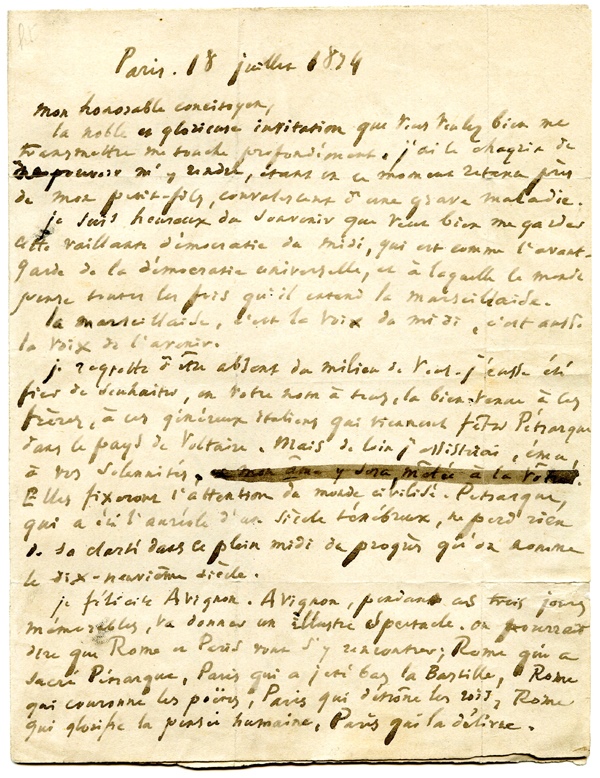 Paris. 18 juillet 1874
mon honorable concitoyen,
la noble et glorieuse invitation que vous voulez bien me
transmettre me touche profondément. j'ai le chagrin de
ne pouvoir m'y rendre, étant en ce moment retenu près
de mon petit-fils, convalescent d'une grave maladie.
je suis heureux du souvenir que veut bien me garder
cette vaillante démocratie du midi, qui est comme l'avant-
garde de la démocratie universelle, et à laquelle le monde
pense toutes les fois qu'il entend la marseillaise.
la marseillaise, c'est la voix du midi, c'est aussi
la voix de l'avenir.
je regrette d'être absent du milieu de vous. j'eusse été
fier de souhaiter, en votre nom à tous, la bienvenue à ces
frères, à ces généreux italiens qui viennent fêter Pétrarque
dans le pays de Voltaire. Mais de loin j'assisterai, ému
à vos solennités. et mon âme y sera mêlée à la vôtre.
Elles fixeront l'attention du monde civilisé. Pétrarque,
qui a été l'auréole d'un siècle ténébreux, ne perd rien
de sa clarté dans ce plein midi du progrès qu'on nomme
le dix-neuvième siècle.
je félicite Avignon. Avignon, pendant ces trois jours
mémorables, va donner un illustre spectacle. on pourrait
dire que Rome et Paris vont s'y rencontrer; Rome qui a
sacré Pétrarque, Paris qui a jeté bas la Bastille, Rome
qui couronne les poëtes, Paris qui détrône les rois, Rome
qui glorifie la pensée humaine, Paris qui la délivre.